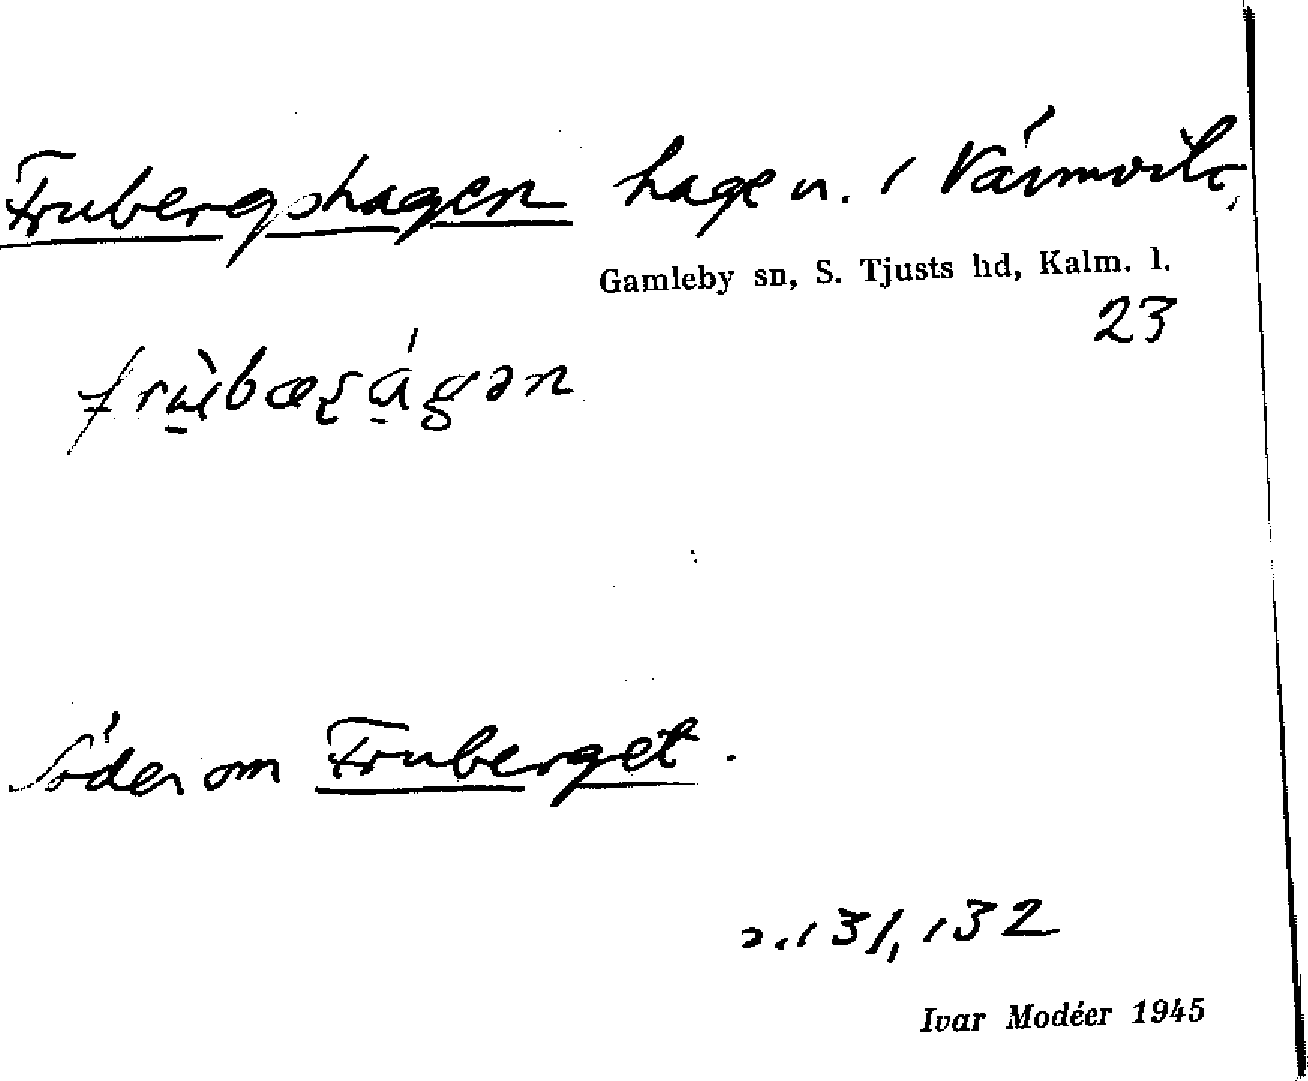 Frubergshagen hage n. i Värmvik,
Gamleby sn, S. Tjusts hd, Kalm. l.
23
Söder om Fruberget.
131, 132
Ivar Modéer 1945